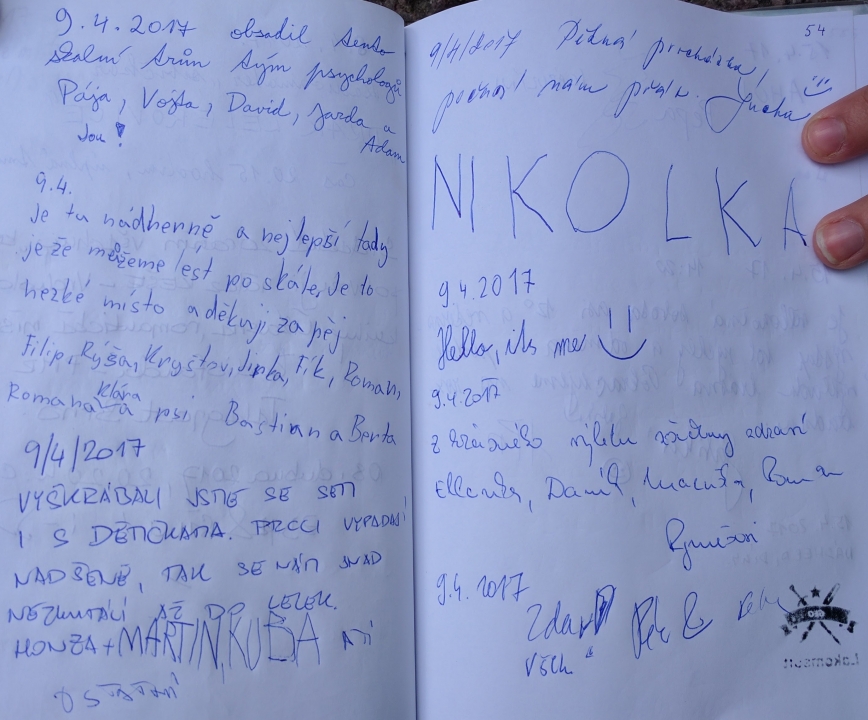 9.4.2017 obsadil tento
skalní trůn tým psychologů
Pája, Vojta, David, Jarda a
Adam
9.4.
Je tu nádherně a nejlepší tady
je že můžeme lést po skále, Je to
hezké místo a děkuji za pěj
Filip, Rýša, Kryštov, Jirka, Fík, Roman,
Romana Klára a psi Bastian a Berta
9/4/2017
VYŠKRÁBALI JSME SE SEM
I S DĚTIČKAMA. PRCCI VYPADAJÍ
NADŠENĚ, TAK SE NÁM SNAD
AŽ DO
HONZA + MARTIN, KUBA A
OSTATNÍ
54
9/4/2017 Pěkná procházka,
počasí nám přeje.
NIKOLKA
9.4.2017
Hello, it's me
9.4.2017
z krásného výletu všechny zdraví
Daniel, Roman
9.4.2017
Zdar
všem